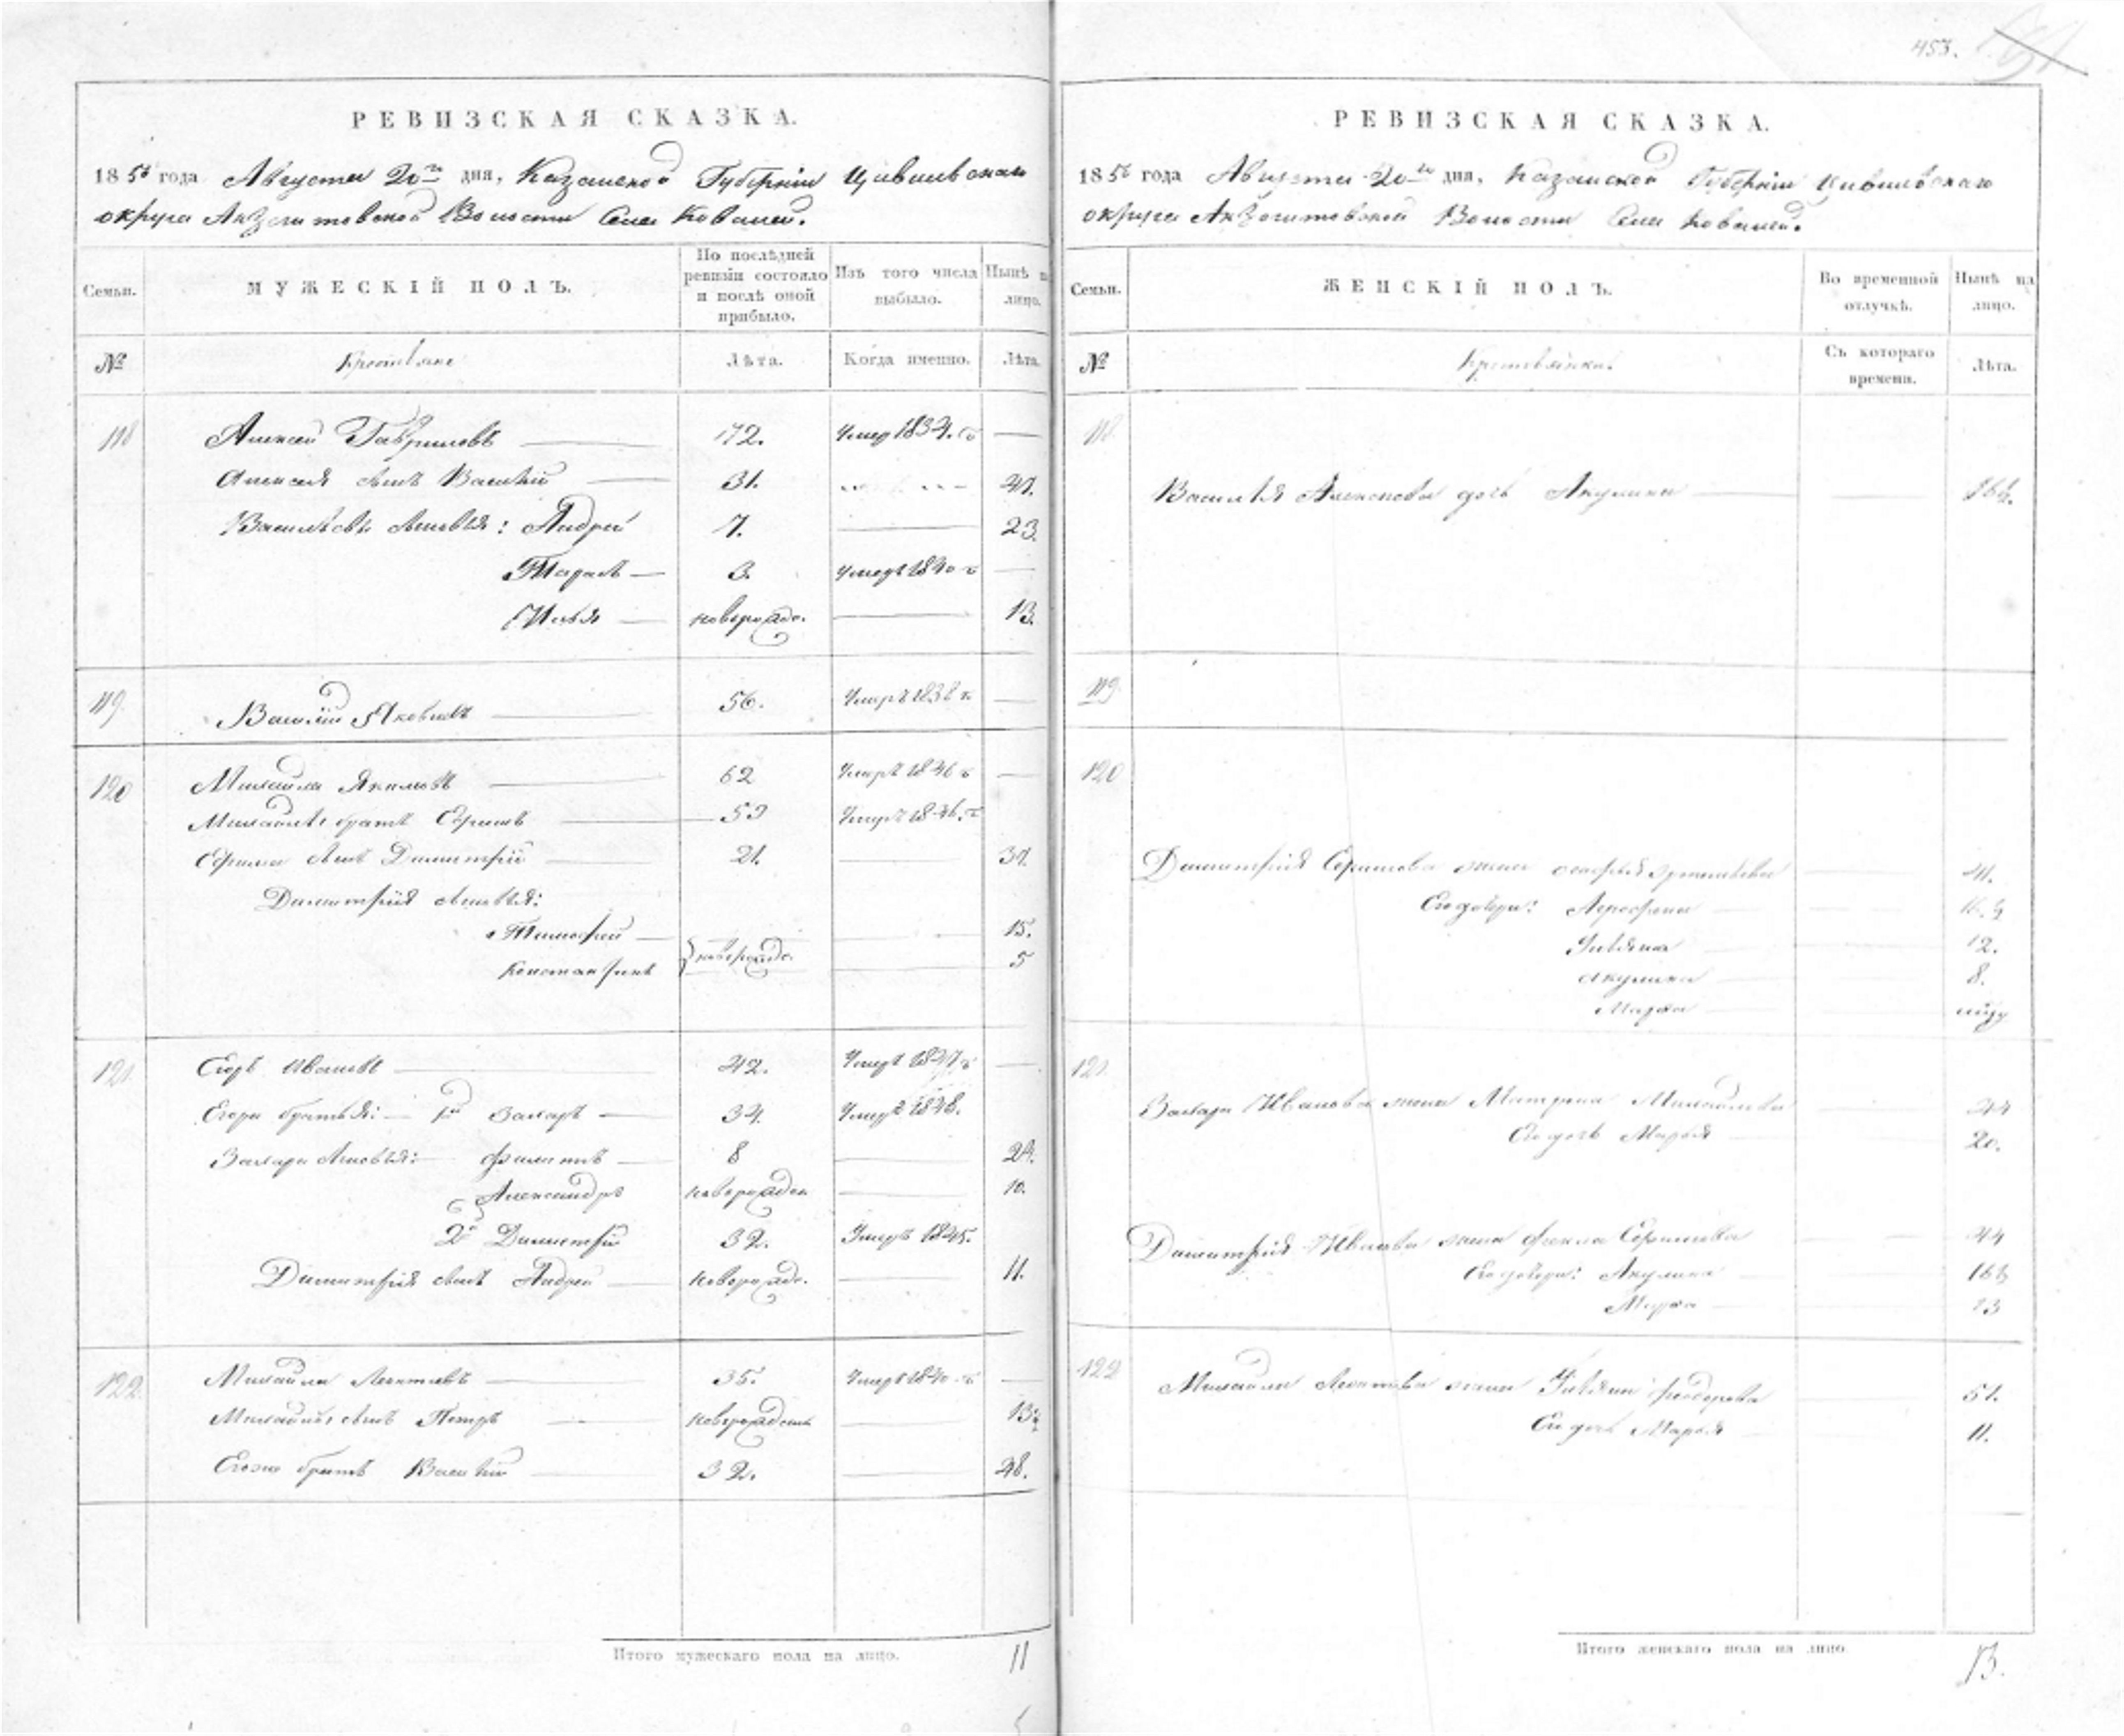 453.
РЕВИЗСКАЯ СКАЗКА.
1856 года Августа 20го дня, Казанской Губернiи Цивильскаго
округа Акзегитовской Волости Села Ковалей.
Семьи.
МУЖЕСКIЙ ПОЛЪ.
По послѣдней ревизiи состояло и послѣ оной прибыло.
Изъ того числа выбыло.
Нынѣ на лицо.
№
Крестьяне
Лѣта.
Когда именно.
Лѣта.
118 Алексей Гавриловъ 72. Умер 1834. г.
Алексея сынъ Василiй 31. 47.
Васильевы сыновья: Андрей 7. 23.
Тарасъ 3. Умеръ 1840 г
Илья новорожд. 13.
119. Василiй Яковлевъ 56. Умеръ 1838 г.
120 Михайла Якимовъ 62 Умеръ 1846 г
Михайлы братъ Ефимъ 53 Умеръ 1846. г
Ефима сынъ Димитрiй 21. 37.
Димитрiя сыновья:
Тимофей 15.
новорожд.
Константинъ 5
121. Егоръ Ивановъ 42. Умеръ 1847 г
Егора братья: 1й Захаръ 34. Умеръ 1848.
Захара сыновья: Филипъ 8 24.
Александръ новорожден 10.
2й Димитрiй 32. Умеръ 1845.
Димитрiя сынъ Андрей новорожд. 11.
122. Михайла Леонтьевъ 35. Умеръ 1840 г
Михайлы сынъ Петръ новорожденъ 13½
Егожъ братъ Василiй 32. 48.
Итого мужескаго пола на лицо. 11
РЕВИЗСКАЯ СКАЗКА.
1856 года Августа 20го дня, Казанской Губернiи Цивильскаго
округа Акзегитовской Волости Села Ковалей.
Семьи.
ЖЕНСКIЙ ПОЛЪ.
Во временной отлучкѣ.
Нынѣ на лицо.
№
Крестьянки.
Съ котораго времени.
Лѣта.
118.
Василья Алексѣева дочь Акулина 16½.
119.
120
Димитрiя Ефимова жена 41.
Его дочери:
Татьяна 12.
Акулина 8.
Марфа
121.
Захара Иванова жена Матрена Михайлова 44
Его дочь Марья 20.
Димитрiя Иванова жена Фекла Ефимова 44
Его дочери: Акулина 16½
Марфа 13
122
Михайлы Леонтьева жена Татьяна Феодорова 51.
Ея дочь Марья 11.
Итого женскаго пола на лицо. 13.